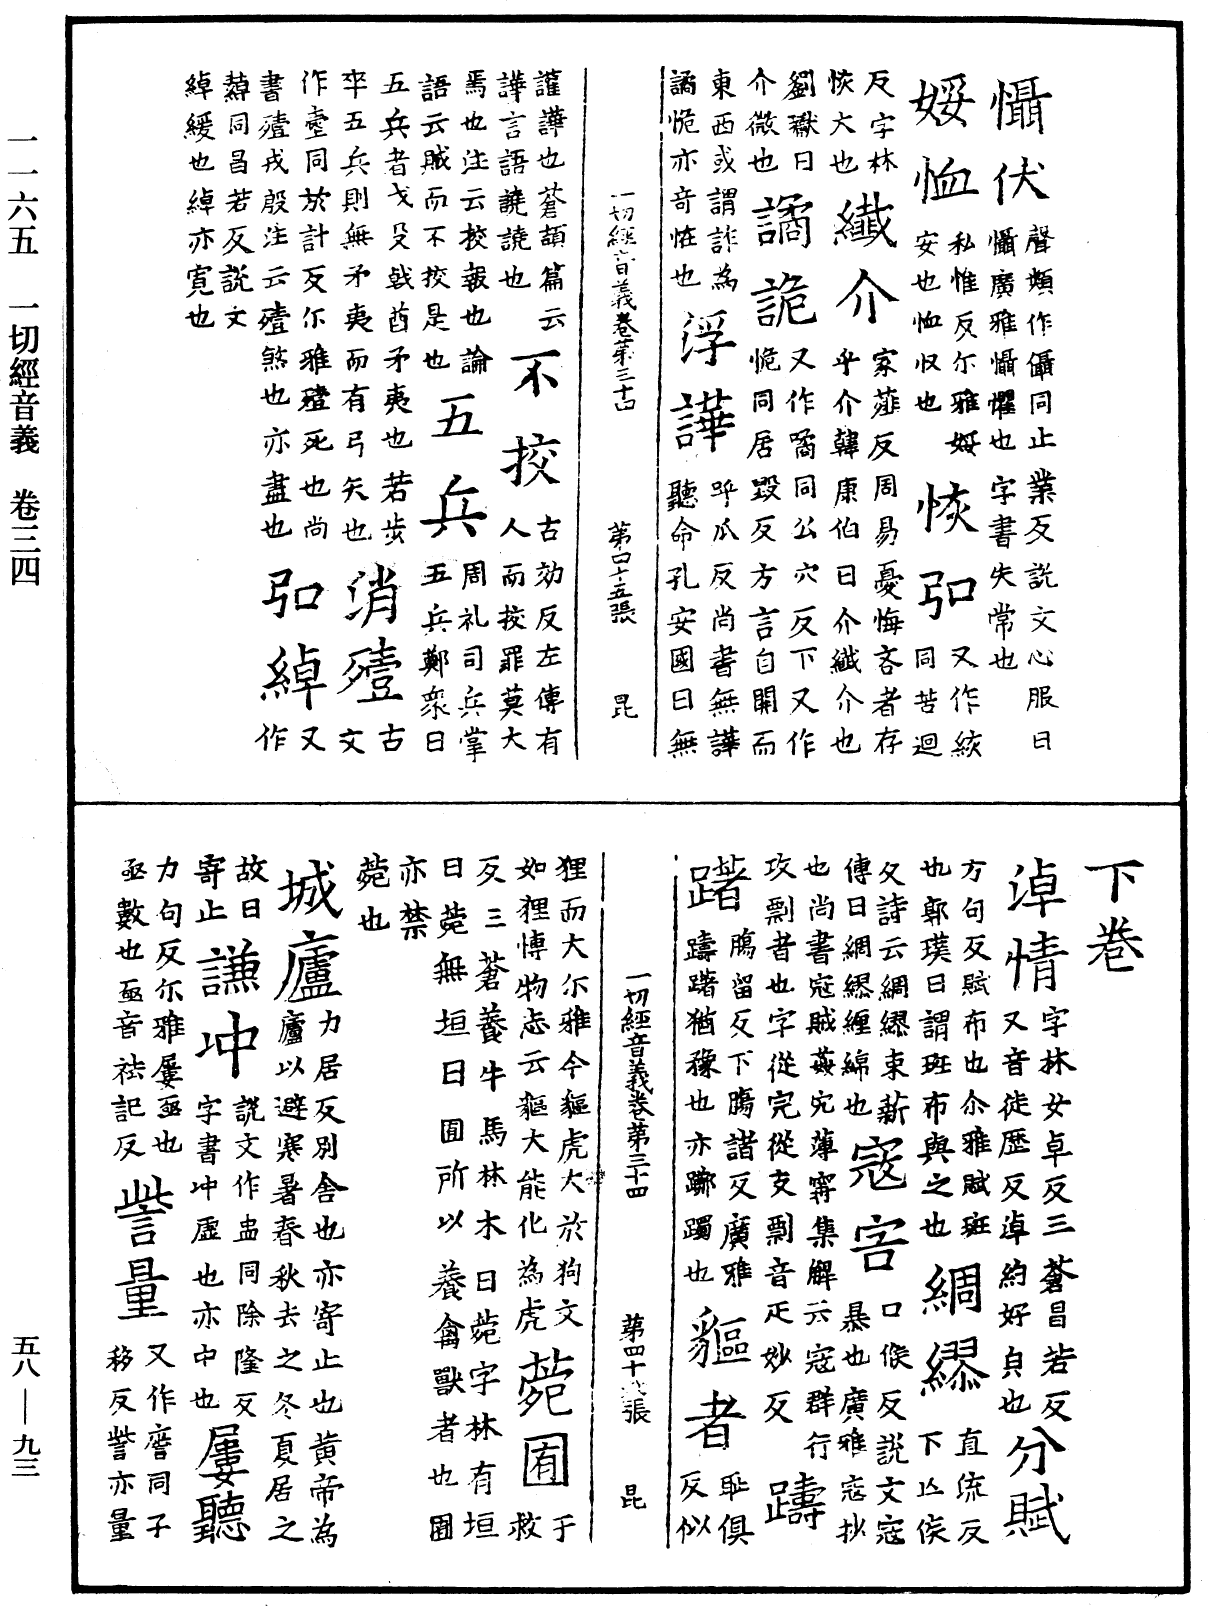 懾伏聲類作儡同止業反說文心服曰懾廣雅懾懼也字書失常也
婑恤私惟反尒雅婑安也恤収也恢弘又作紭同苦迴
反字林恢大也纖介家薤反周易憂悔吝者存乎介韓康伯曰介纖介也
劉瓛曰介微也譎詭又作噊同公穴反下又作恑同居毀反方言自關而
東西或謂詐為譎恑亦奇恠也浮譁呼瓜反尚書無譁聽命孔安國曰無
一切經音義卷第三十四 第四十五張 昆
讙譁也蒼頡篇云譁言語譊譊也不挍古効反左傳有人而挍罪莫大
焉也注云挍報也論語云賊而不挍是也五兵周礼司兵掌五兵鄭眾曰
五兵者戈殳戟酋矛夷也若步卒五兵則無矛夷而有弓矢也消殪古文
作壼同於計反尒雅殪死也尚書殪戎殷注云殪煞也亦盡也弘綽又作
繛同昌若反說文綽緩也綽亦寬也
下卷
淖情字林女卓反三蒼昌若反又音徒歷反淖約好皃也分賦
方句反賦布也尒雅賦班也郭璞曰謂班布與之也綢繆直流反下亡侯
反詩云綢繆束薪傳曰綢繆纏綿也寇害口候反說文寇暴也廣雅寇抄
也尚書寇賊姦宄薄甯集解云寇群行攻剽者也字從完從支剽音疋妙反躊
躇腸留反下腸諸反廣雅躊躇猶豫也亦躑躅也貙者恥俱反似
一切經音義卷第三十四 第四十六張 昆
狸而大尒雅今貙虎大於狗文如狸博物志云貙大能化為虎菀囿于救
反三蒼養牛馬林木曰菀字林有垣曰菀無垣曰囿所以養禽獸者也囿
亦禁菀也
城廬力居反別舍也亦寄止也黃帝為廬以避寒暑春秋去之冬夏居之
故曰寄止謙冲說文作盅同除隆反字書冲虛也亦中也屢聽
力句反尒雅屢亟也亟數也亟音袪記反訾量又作𧧻同子移反訾亦量
一一六五 一切經音義 卷三四
五八—九三